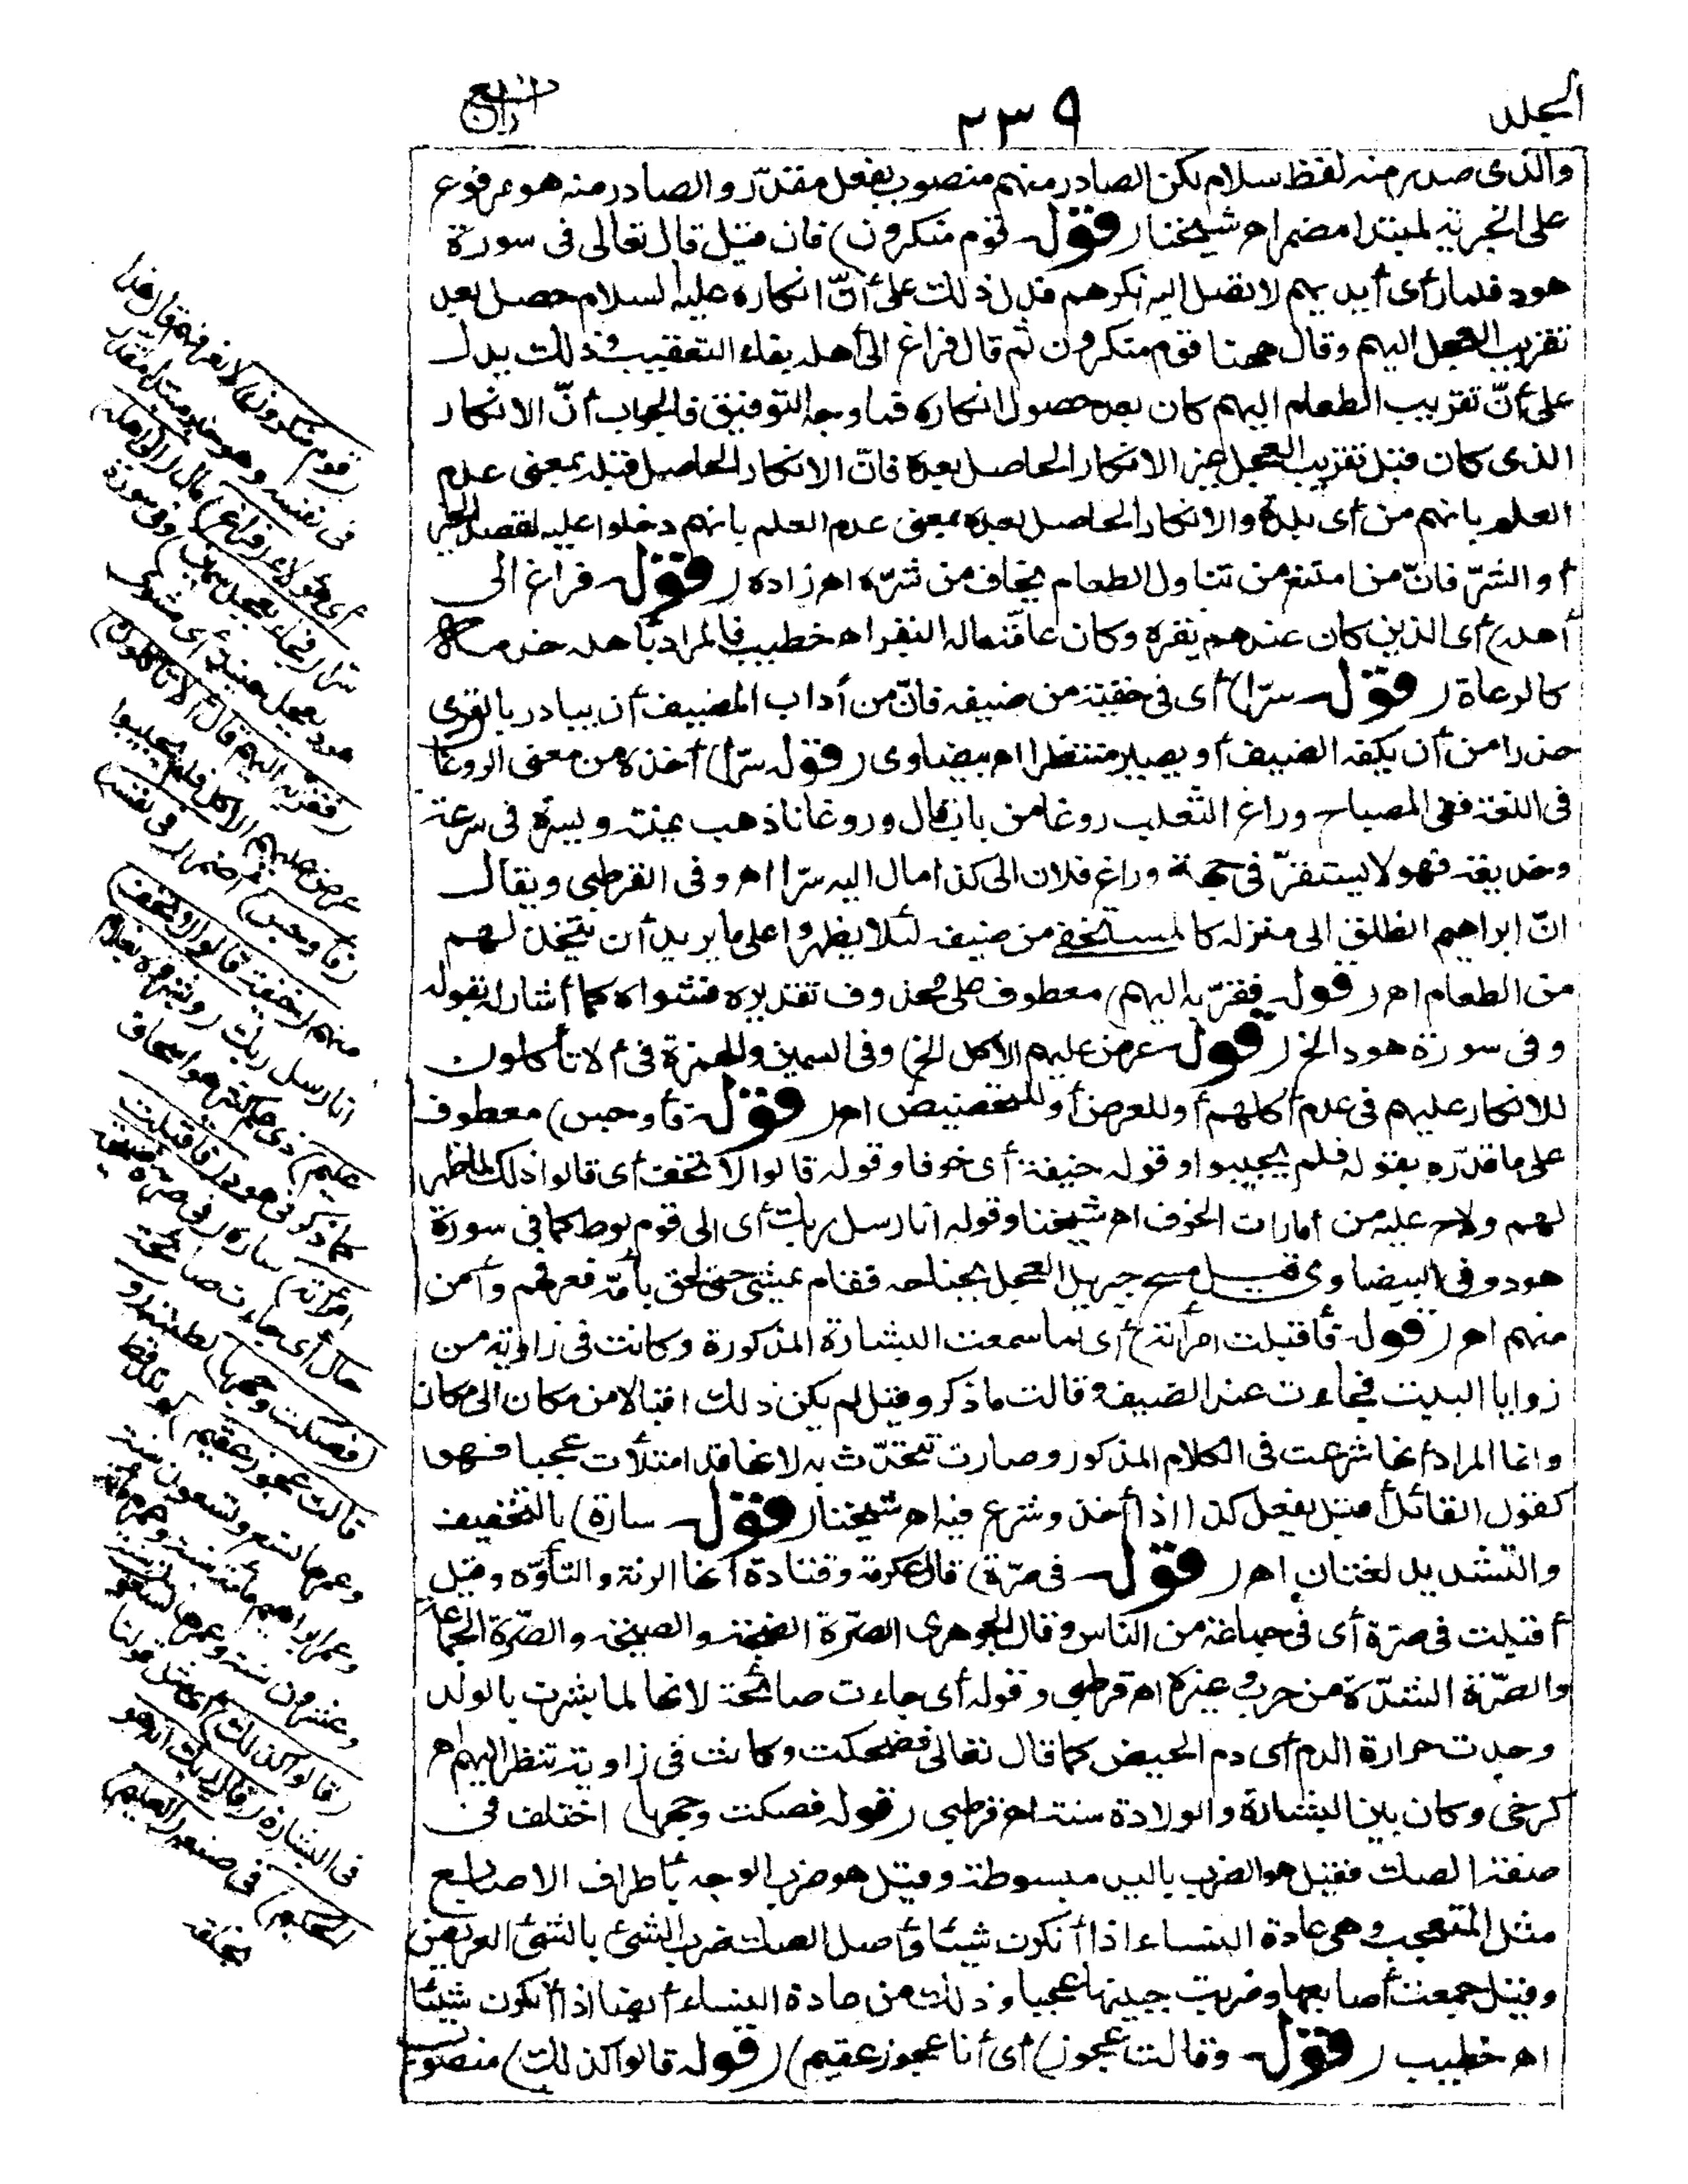 المجلد
٢٣٩
الرابع
والذى صدر منه لفظ سلام لكن الصادر منهم منصوب بفعل مقدّر والصادر منه هو مرفوع
على الخبرية لمبتدا مضمر اهـ شيخنا (قوله قوم منكرون) فان قيل قال تعالى فى سورة
هود فلما رأى أيديهم لا تصل اليه نكرهم فدل ذلك على أنّ انكاره عليه السلام حصل بعد
تقريب العجل اليهم وقال ههنا قوم منكرون ثم قال فراغ الى أهله بفاء التعقيب وذلك يدل
على أنّ تقريب الطعام اليهم كان بعد حصول انكاره فما وجه التوفيق فالجواب أنّ الانكار
الذى كان قبل تقريب العجل غير الانكار الحاصل بعده فانّ الانكار الحاصل قبله بمعنى عدم
العلم بانهم من أى بلدة والانكار الحاصل بعده بمعنى عدم العلم بانهم دخلوا عليه لقصد الخير
أو الشرّ فانّ من امتنع من تناول الطعام يخاف من شرّه اهـ زاده (قوله فراغ الى
أهله) أى الذين كان عندهم بقره وكان عامّة ماله البقر اهـ خطيب فالمراد بأهله خدمه
كالرعاة (قوله سرّا) أى فى خفية من ضيفه فانّ من أداب المضيف أن يبادر بالقرى
حذرا من أن يكفه الضيف أو يصير منتظرا اهـ بيضاوى (قوله سرّا) أخذه من معنى الروغا
فى اللغة ففى المصباح وراغ الثعلب روغا من باب قال وروغانا ذهب يمنة ويسرة فى سرعة
وخديعة فهو لا يستقرّ فى جهة وراغ فلان الى كذا مال اليه سرّا اهـ وفى القرطبى ويقال
انّ ابراهيم انطلق الى منزله كالمستخفى من ضيفه لئلا يظهروا على ما يريد أن يتخذ لهم
من الطعام اهـ (قوله فقرّبه اليهم) معطوف على محذوف تقديره فشواه كما أشار له بقوله
وفى سورة هود الخ (قوله عرض عليهم الأكل الخ) وفى السمين والهمزة فى ألا تأكلون
للانكار عليهم فى عدم أكلهم أو للعرض أو للتحضيض اهـ (قوله فأوجس) معطوف
على ما قدّره بقوله فلم يجيبوا وقوله خيفة أى خوفا وقوله قالوا لا تخف أى قالوا ذلك لما ظهر
لهم ولاح عليه من أمارات الخوف اهـ شيخنا وقوله انا رسل ربك أى الى قوم لوط كما فى سورة
هود وفى البيضاوى قيل مسح جبريل العجل بجناحه فقام يمشى حتى لحق بأمّه فعرفهم وأمن
منهم اهـ (قوله فأقبلت امرأته) أى لما سمعت البشارة المذكورة وكانت فى زاوية من
زوايا البيت فجاءت عند الضيف وقالت ما ذكر وقيل لم يكن ذلك اقبالا من مكان الى مكان
وانما المراد أنها شرعت فى الكلام المذكور وصارت تتحدّث به لانها قد امتلأت عجبا فهو
كقول القائل أقبل يفعل كذا اذا أخذ وشرع فيه اهـ شيخنا (قوله سارة) بالتخفيف
والتشديد لغتان اهـ (قوله فى صرّة) قال عكرمة وقتادة انها الرنة والتأوّه وقيل
أقبلت فى صرّة أى فى جماعة من الناس وقال الجوهرى الصرّة الضجة والصيحة والصرّة الجماعة
والصرّة الشدّة من حرب وغيره اهـ قرطبى وقوله أى جاءت صائحة لانها لما بشرت بالولد
وجدت حرارة الدم أى دم الحيض كما قال تعالى فضحكت وكانت فى زاوية تنظر اليهم اهـ
كرخى وكان بين البشارة والولادة سنة اهـ قرطبى (قوله فصكت وجهها) اختلف فى
صفة الصك فقيل هو الضرب باليد مبسوطة وقيل هو ضرب الوجه بأطراف الاصابع
مثل المتعجب وهى عادة النساء اذا أنكرن شيئا وأصل الصك ضرب الشئ بالشئ العريض
وقيل جمعت أصابعها وضربت جبينها عجبا وذلك من عادة النساء أيضا اذا أنكرن شيئا
اهـ خطيب (قوله وقالت عجوز) أى أنا عجوز عقيم) (قوله قالوا كذلك) منصوب
(قوم منكرون) لا نعرفهم قال هذا
فى نفسه وهو خبر مبتدا مقدر
أى هؤلاء (فراغ) مال (الى أهله)
سرّا (فجاء بعجل سمين) وفى سورة
هود بعجل حنيذ أى مشوى
(فقربه اليهم قال ألا تأكلون)
عرض عليهم الاكل فلم يجيبوا
(فأوجس) أضمر فى نفسه
(منهم خيفة قالوا لا تخف)
انا رسل ربك (وبشروه بغلام
عليم) ذى علم كثير هو اسحاق
كما ذكر فى هود (فأقبلت
امرأته) سارة (فى صرّة) صيحة
حال أى جاءت صائحة
(فصكت وجهها) لطمته (و
قالت عجوز عقيم) لم تلد قط
وعمرها تسع وتسعون سنة
وعمر ابراهيم مائة سنة أو عمره مائة
وعشرون سنة وعمرها تسعون سنة
(قالوا كذلك) أى مثل قولنا
فى البشارة (قال ربك انه هو
الحكيم) فى صنعه (العليم)
بخلقه